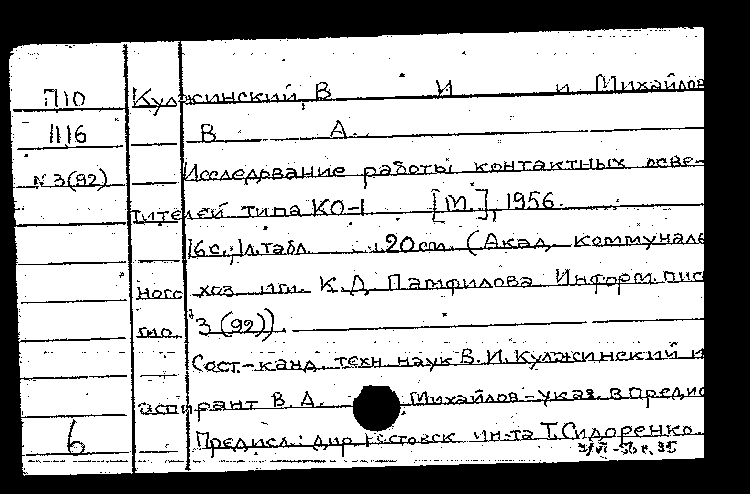 П10 Кулжинский, В И и Михайлов
1116 В А.
N 3(92) Исследование работы контактных осве-
тителей типа КО-1 [М.], 1956.
16 с.; 1 л. табл. 20 см. (Акад. коммуналь
ного хоз. им. К.Д. Памфилова Информ. пис
мо. 3 (92)).
Сост.-канд. техн. наук В.И. Кулжинский и
аспирант В.А. Михайлов - указ. в предис
6 Предисл.: дир Ростовск ин-та Т. Сидоренко.